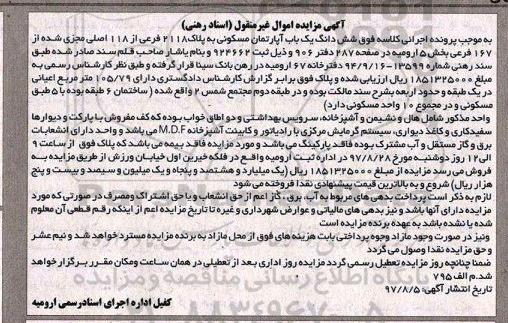 آگهی مزایده اموال غیرمنقول (اسناد رهنی)
به موجب پرونده اجرائی کلاسه فوق شش دانگ یک باب آپارتمان مسکونی به پلاک ۲۱۱۸ فرعی از ۱۱۸ اصلی مجزی شده از
۱۶۷ فرعی بخش ۵ ارومیه در صفحه ۲۸۷ دفتر ۹۰۶ و ذیل ثبت ۹۲۴۶۶۲ و بنام یاشار صاحب قلم سند صادر شده طبق
سند رهنی شماره ۱۳۵۹۹-۹۴/۹/۱۶ دفترخانه ۶۷ ارومیه در رهن بانک سینا قرار گرفته و طبق نظر کارشناس رسمی به
مبلغ ۱۸۵۱۳۲۵۰۰۰ ریال ارزیابی شده و پلاک فوق برابر گزارش کارشناس دادگستری دارای ۱۰۵/۷۹ متر مربع اعیانی
در یک طبقه و حدود اربعه بشرح سند مالکیت بوده و در طبقه دوم مجتمع شمس ۲ واقع شده (ساختمان ۶ طبقه بوده با ۵ طبق
مسکونی و در مجموع ۱۰ واحد مسکونی دارد)
واحد مذکور شامل هال و نشیمن و آشپزخانه، سرویس بهداشتی و دو اطاق خواب بوده که کف مفروش با پارکت و دیوارها
سفیدکاری و کاغذ دیواری، سیستم گرمایش مرکزی با رادیاتور و کابینت آشپزخانه M.D.F می باشد و واحد دارای انشعابات
برق و گاز مستقل و آب مشترک بوده فاقد پارکینگ می باشد و مورد مزایده فاقد بیمه می باشد که پلاک فوق از ساعت ۹
الی ۱۲ روز دوشنبه مورخ ۹۷/۸/۲۸ در اداره ثبت ارومیه واقع در فلکه خیرین اول خیابان ورزش از طریق مزایده به
فروش می رسد مزایده از مبلغ ۱۸۵۱۳۲۵۰۰۰ ریال (یک میلیارد و هشتصد و پنجاه و یک میلیون و سیصد و بیست و پنج
هزار ریال) شروع و به بالاترین قیمت پیشنهادی نقدا فروخته می شود
لازم به ذکر است پرداخت بدهی های مربوط به آب، برق، گاز اعم از حق انشعاب و یا حق اشتراک و مصرف در صورتی که مورد
مزایده دارای آنها باشد و نیز بدهی های مالیاتی و عوارض شهرداری و غیره تا تاریخ مزایده اعم از اینکه رقم قطعی آن معلوم
شده یا نشده باشد به عهده برنده مزایده است
ونیز در صورت وجود مازاد وجوه پرداختی بابت هزینه های فوق از محل مازاد به برنده مزایده مسترد خواهد شد و نیم عشر
و حق مزایده نقدا وصول می گردد
ضمنا چنانچه روز مزایده تعطیل رسمی گردد مزایده روز اداری بعد از تعطیلی در همان ساعت و مکان مقرر برگزار خواهد
شد.م الف ۷۹۵
تاریخ انتشار آگهی: ۹۷/۸/۵
کفیل اداره اجرای اسناد رسمی ارومیه